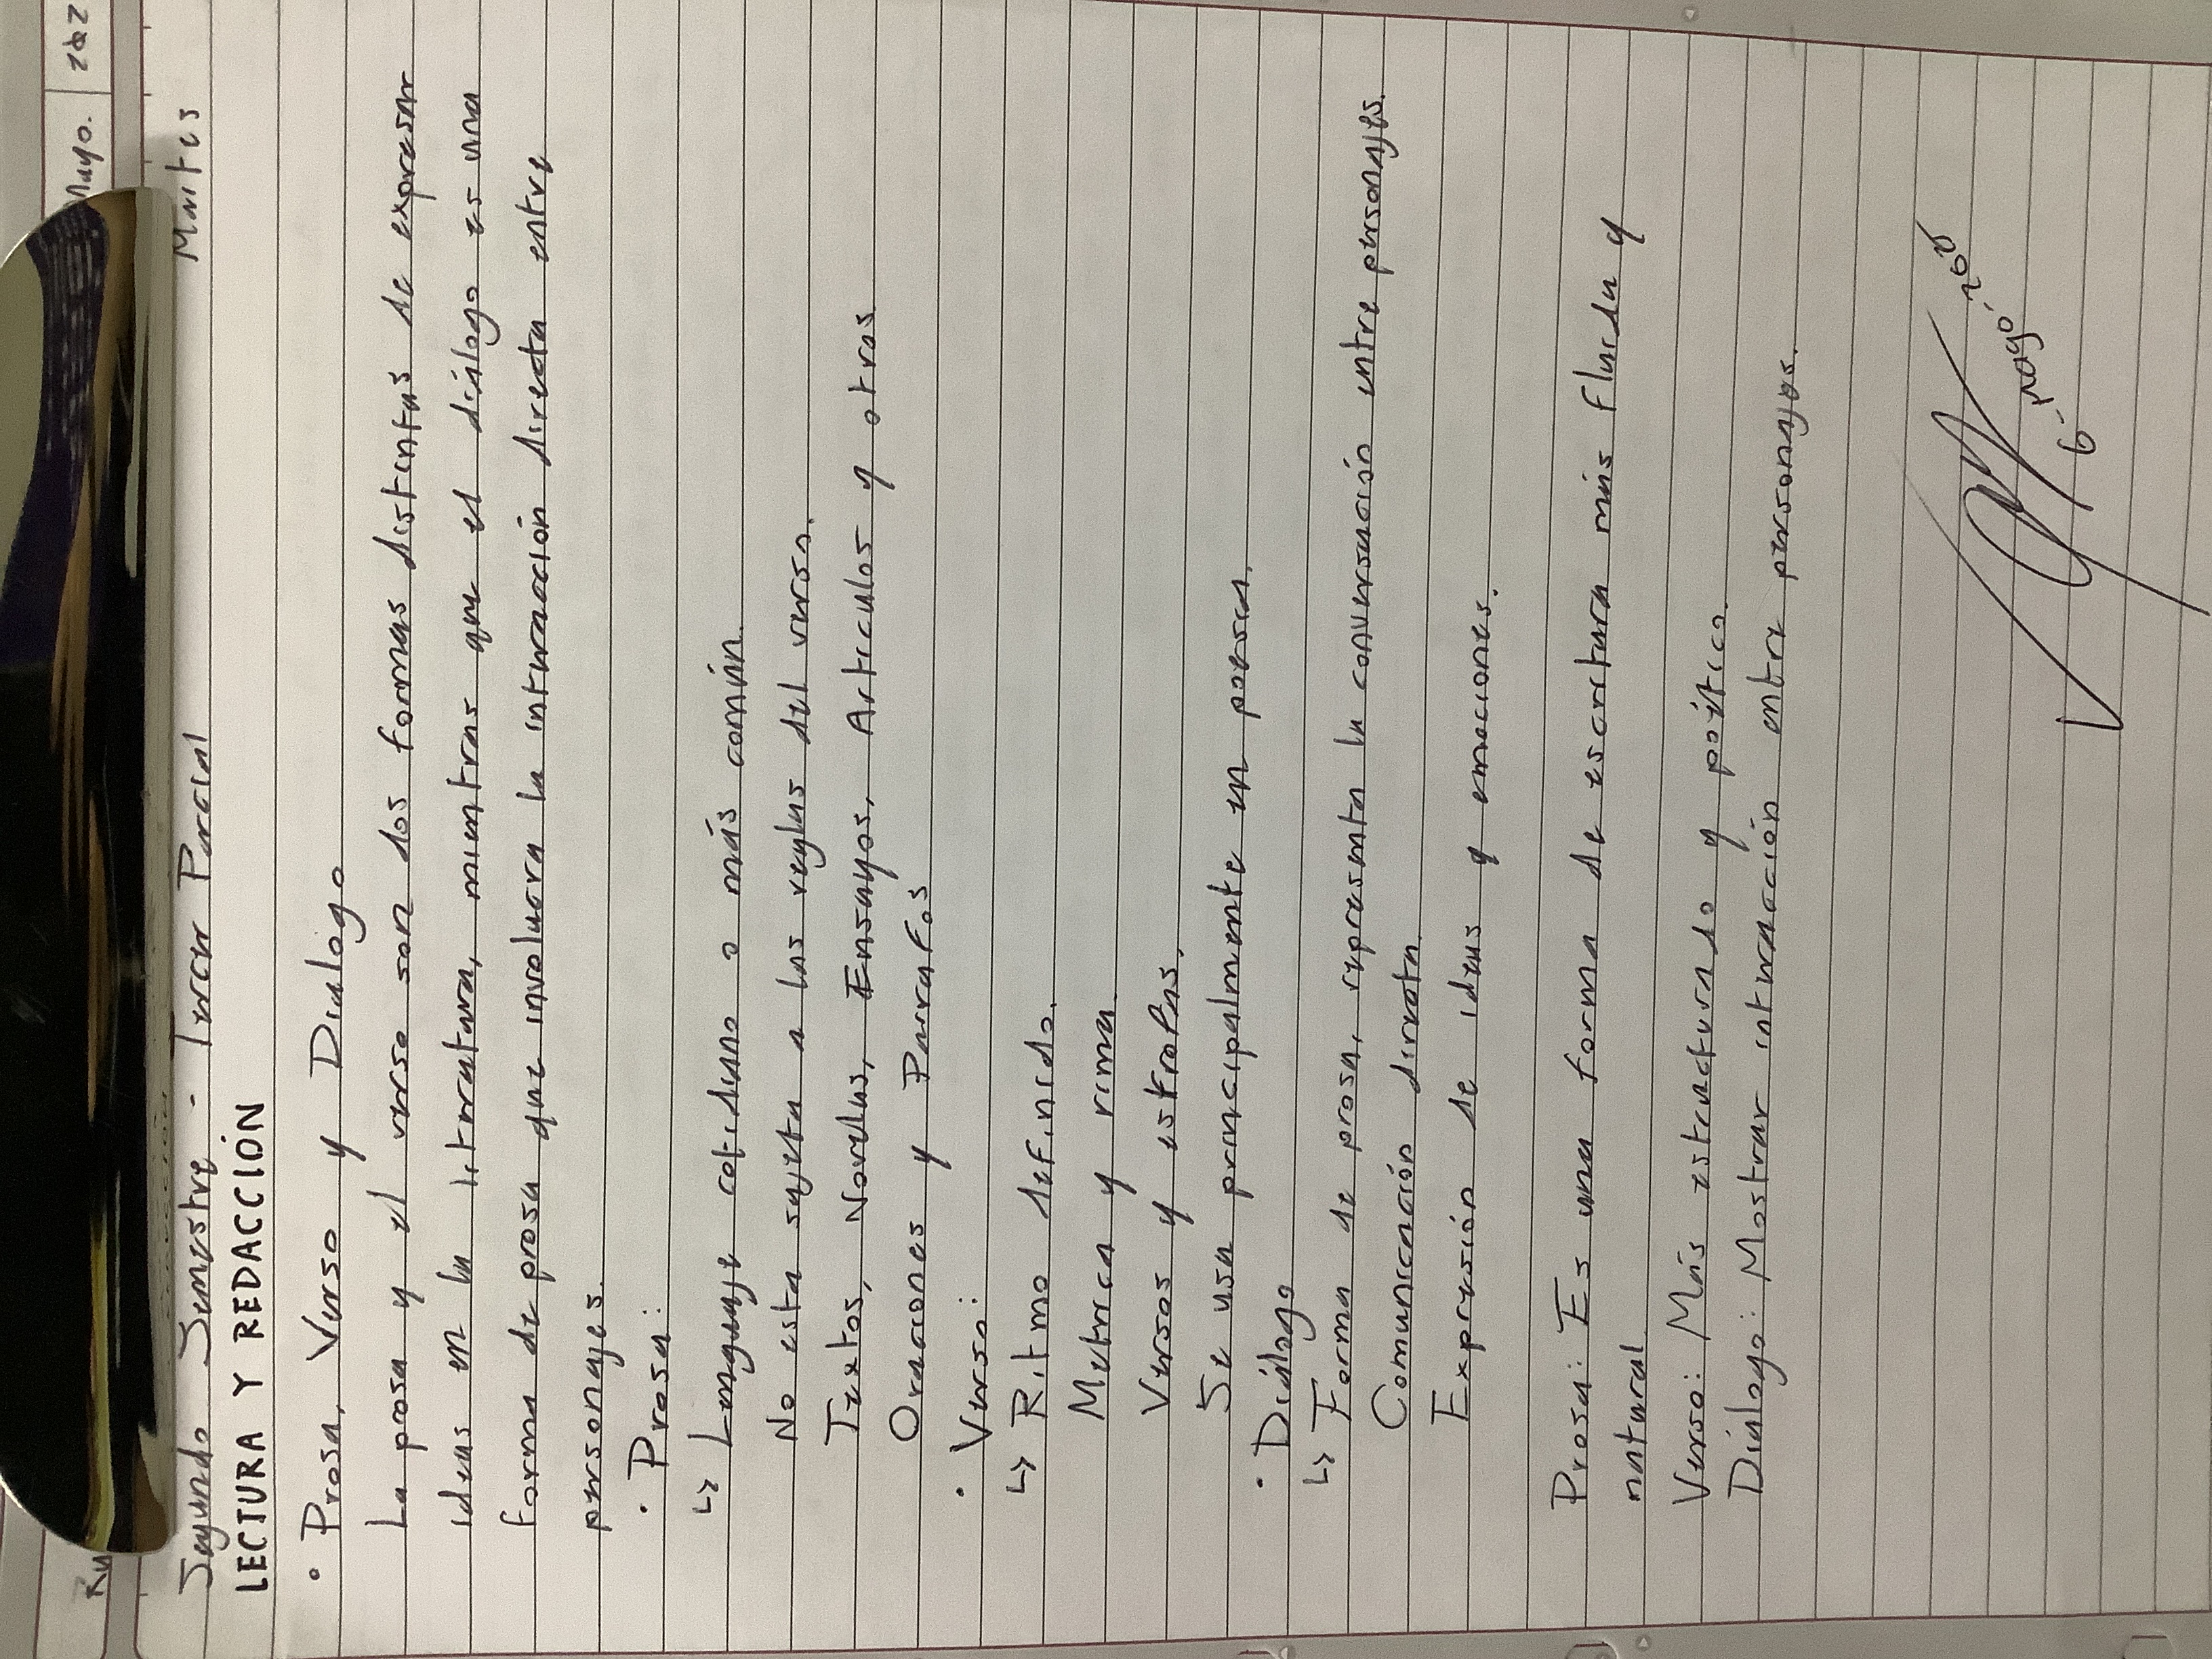 Mayo.
Segundo Semestre - Tercer Parcial Martes
LECTURA Y REDACCIÓN
• Prosa, Verso y Dialogo
La prosa y el verso son dos formas distintas de expresar
ideas en la literatura, mientras que el diálogo es una
forma de prosa que involucra la interacción directa entre
personajes.
• Prosa:
↳ Lenguaje cotidiano o más común.
No esta sujeta a las reglas del verso.
Textos, Novelas, Ensayos, Articulos y otros
Oraciones y Parrafos
• Verso:
↳ Ritmo definido.
Metrica y rima
Versos y estrofas,
Se usa principalmente en poesia.
• Diálogo
↳ Forma de prosa, representa la conversación entre personajes.
Comunicación directa
Expresión de ideas y emociones.
Prosa: Es una forma de escritura más fluida y
natural
Verso: Más estructurado y poético.
Diálogo: Mostrar interacción entre personajes.